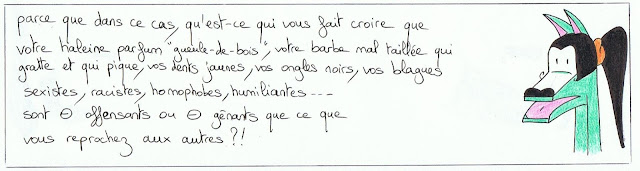 parce que dans ce cas, qu'est-ce qui vous fait croire que
votre haleine parfum "gueule-de-bois", votre barbe mal taillée qui
gratte et qui pique, vos dents jaunes, vos ongles noirs, vos blagues
sexistes, racistes, homophobes, humiliantes ---
sont ⊖ offensants ou ⊖ gênants que ce que
vous reprochez aux autres ?!